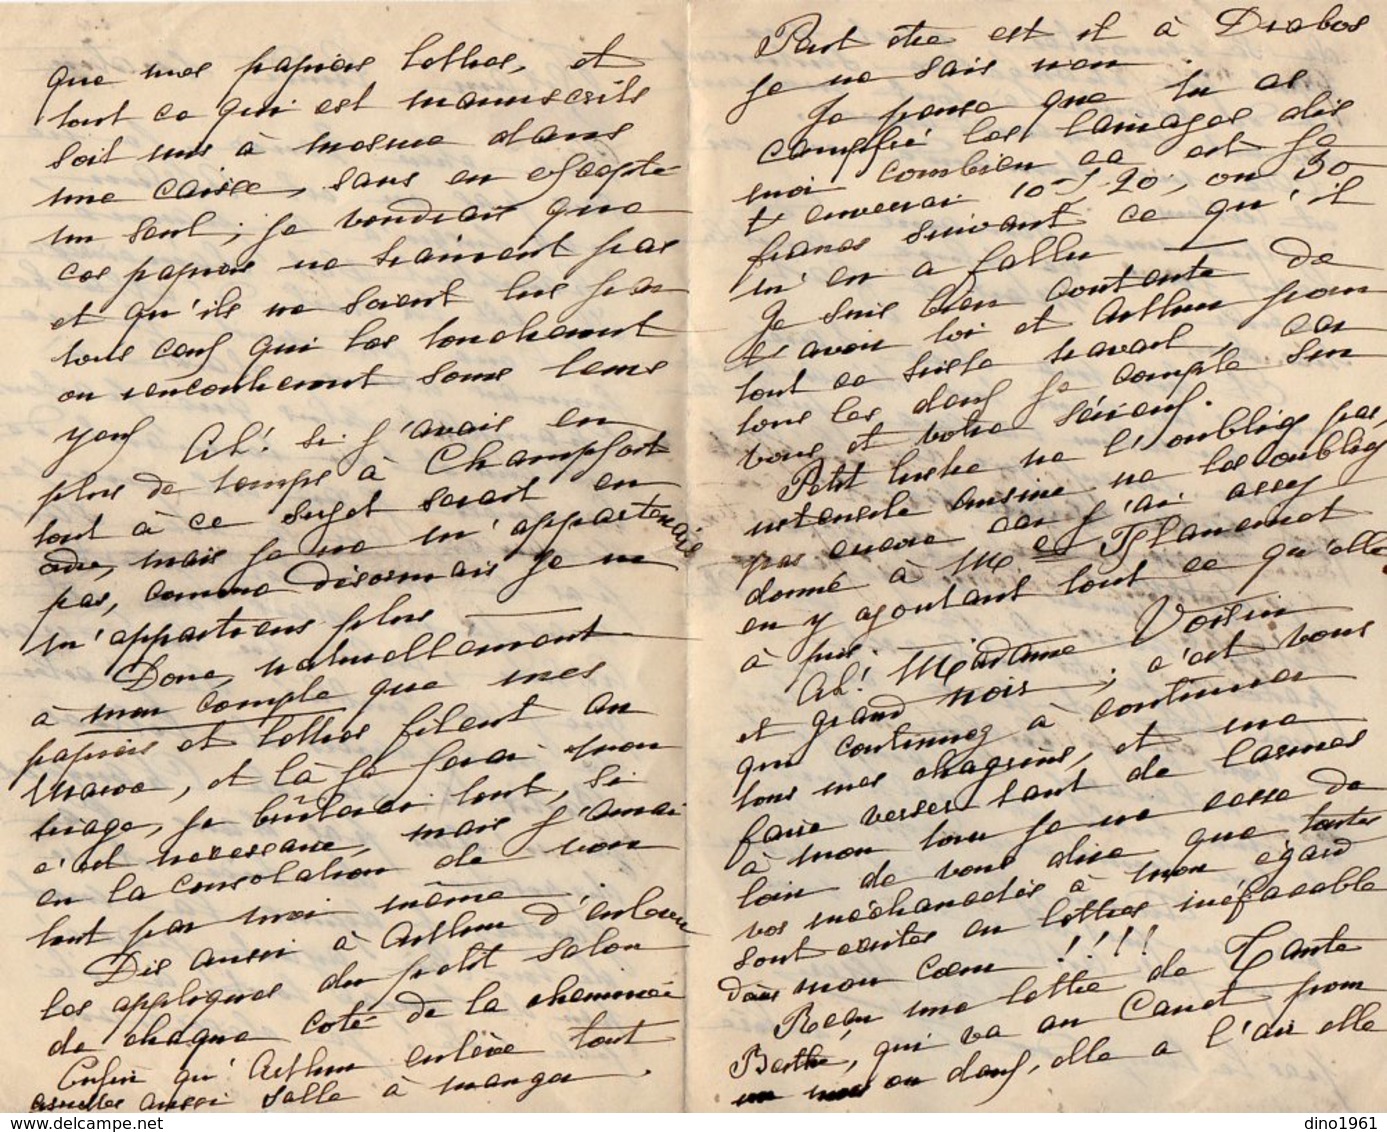 que mes papiers lettres, et
tout ce qui est manuscrits
soit mis à mesure dans
une caisse, sans en excepter
un seul ; je voudrais que
ces papiers ne trainent pas
et qu'ils ne soient lus par
tous ceux qui les toucheront
ou rencontreront sous leurs
yeux Ah! si j'avais eu
plus de temps à Champfort
tout à ce sujet serait en
mais je ne m'appartenais
pas, comme désormais je ne
m'appartiens plus —
Donc, naturellement
à mon compte que mes
papiers et lettres filent au
et là je ferai mon
triage, je brûlerai tout, si
c'est nécessaire, mais j'aurai
eu la consolation de voir
tout par moi même.
Dis aussi à Arthur d'enlever
les appliques du petit salon
de chaque coté de la cheminée
Enfin qu'Arthur enlève tout
aussi salle à manger.
Peut être est il à
je ne sais rien.
Je pense que tu as
les lainages dis
moi combien ce est je
t'enverrai 10 - 20, ou 30
francs suivant ce qu'il
m'en a fallu —
Je suis bien contente de
t'avoir toi et Arthur pour
tout ce triste travail, car
tous les deux je compte sur
vous et votre sérieux.
Petit lustre ne l'oubliez pas,
ustensile cuisine ne les oubliez
pas encore car j'ai assez
donné à Mr
en y ajoutant tout ce qu'elle
à pris.
Ah! Madame Voisin
et grand ; c'est vous
qui continuez à continuer
tous mes chagrins, et me
faire verser tant de larmes
à mon tour je ne cesse de
loin de vous dire que toutes
vos méchancetés à mon égard
sont écrites en lettres inéfaçable
dans mon cœur !!!!
Reçu une lettre de Tante
Berthe, qui va au Canet pour
un mois ou deux, elle a l'air elle
dino1961